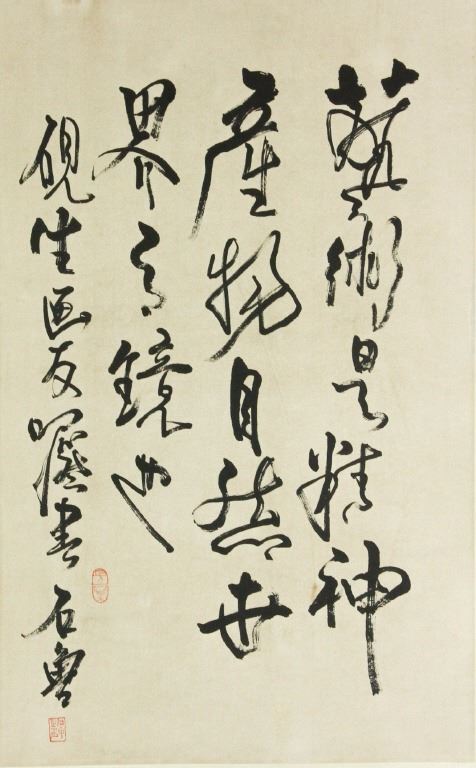 藝術是精神
產物自然世
界之鏡也
硯生画友囑書 石魯